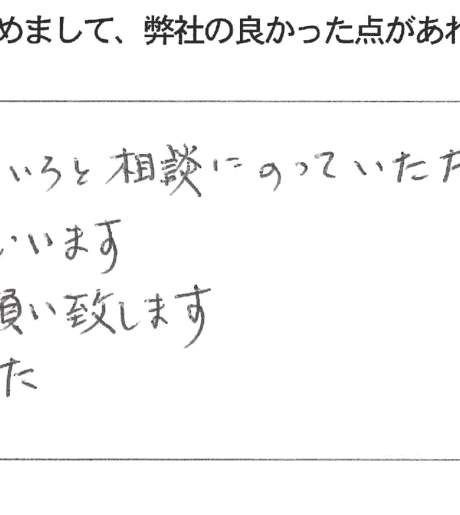 めまして、弊社の良かった点があれ
いろと相談にのっていただ
います
願い致します
た